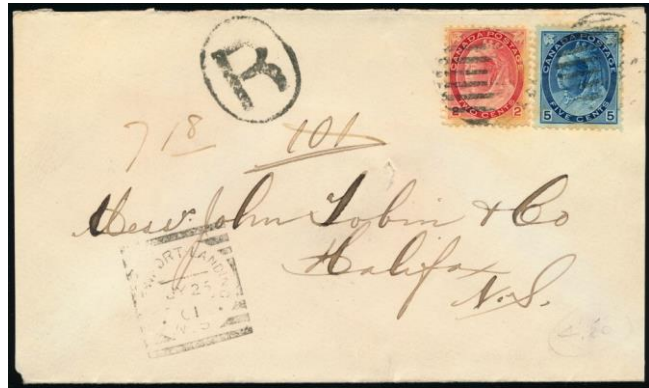 R
CANADA POSTAGE
TWO CENTS
2 2
CANADA POSTAGE
FIVE CENTS
5 5
7 18 101
Messr. John Tobin & Co
Halifax
N.S.
PORT LANDING
25
01
N.S.